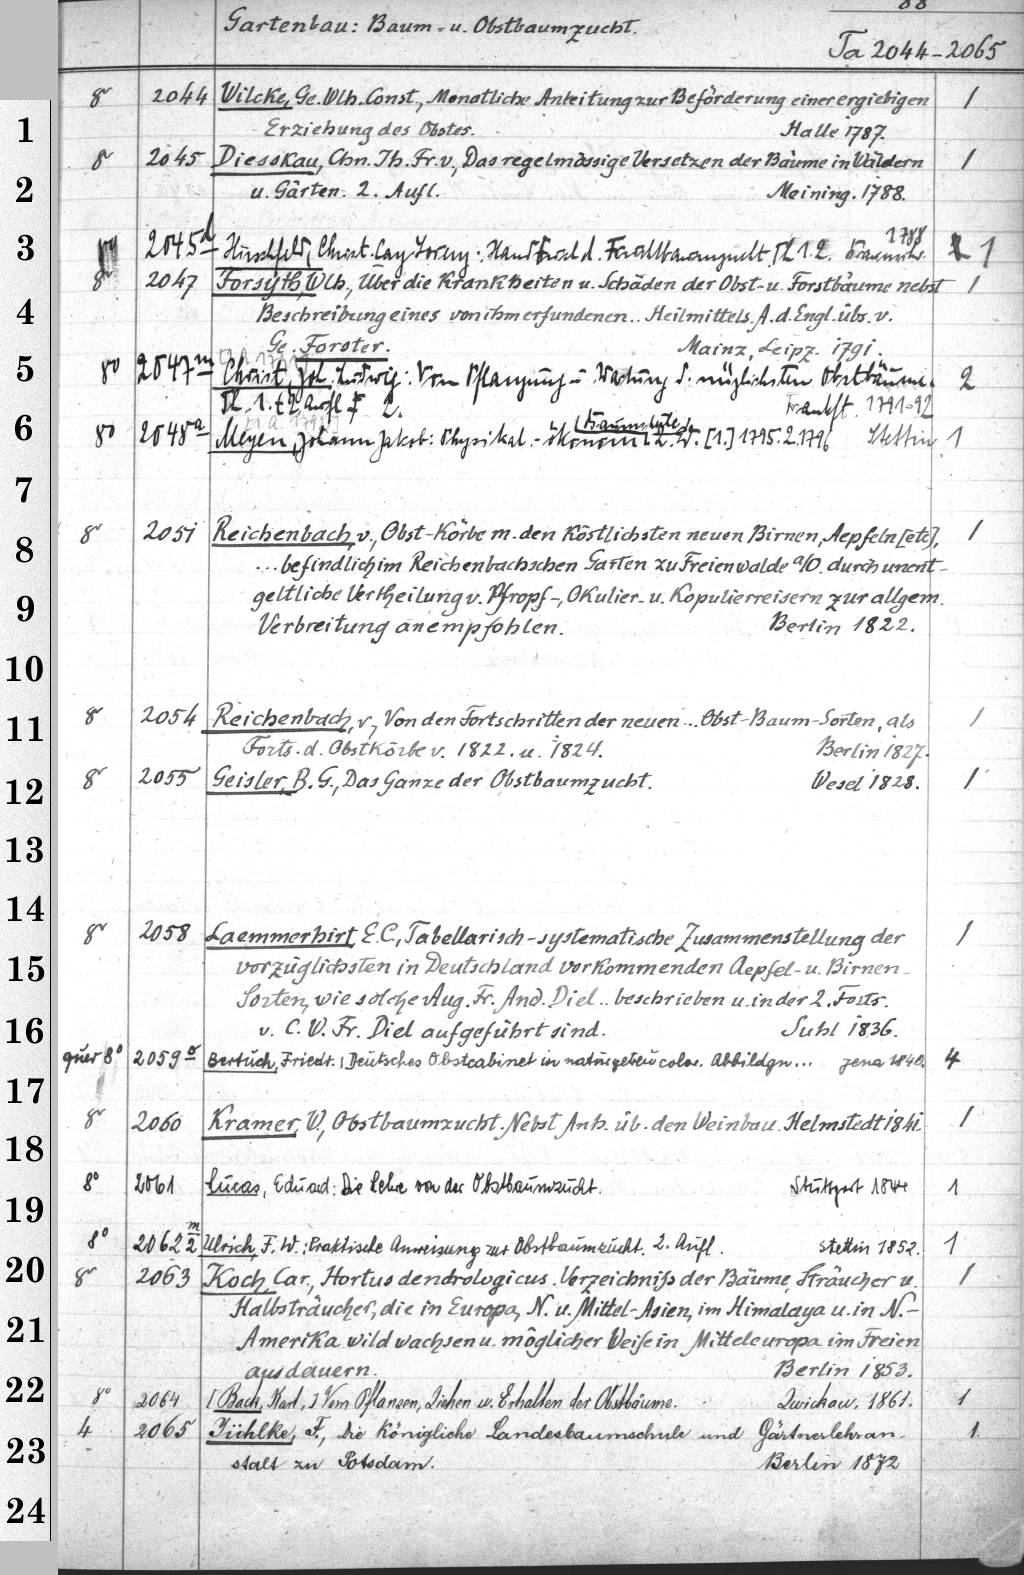 88
Gartenbau: Baum- u. Obstbaumzucht.
Ta 2044-2065
8° 2044 Wilcke, Ge. Wlh. Const., Monatliche Anleitung zur Beförderung einer ergiebigen 1
1 Erziehung des Obstes. Halle 1787.
8° 2045 Diesskau, Chn. Th. Fr. v., Das regelmässige Versetzen der Bäume in Wäldern 1
2 u. Gärten. 2. Aufl. Meining. 1788.
1788
3 2045d Hirschfeld, Christ. Cay Lorenz: Handbuch d. Fruchtbaumzucht. Th 1.2. Braunschw. 1
8° 2047 Forsyth, Wlh., Über die Krankheiten u. Schäden der Obst- u. Forstbäume nebst 1
4 Beschreibung eines von ihm erfundenen .. Heilmittels. A. d. Engl. übs. v.
Ge. Forster. Mainz, Leipz. 1791.
5 8° 2047m Christ, Joh. Ludwig: Vom Pflanzung u Wartung d. nüzlichsten Obstbäume. 2
Th. 1. 2. Aufl 2. Frankft. 1791-92
(Baumschule)
6 8° 2048a Meyen, Johann Jakob: Physikal.-ökonom. [1.] 1795. 2. 1796 Stettin 1
7
8° 2051 Reichenbach, v., Obst-Körbe m. den köstlichsten neuen Birnen, Aepfeln [etc], 1
8 ... befindlich im Reichenbachschen Garten zu Freienwalde a/O. durch unent-
9 geltliche Vertheilung v. Pfropf-, Okulier- u. Kopulierreisern zur allgem.
Verbreitung anempfohlen. Berlin 1822.
10
8° 2054 Reichenbach, v., Von den Fortschritten der neuen ... Obst-Baum-Sorten, als 1
11 Forts. d. Obstkörbe v. 1822. u. 1824. Berlin 1827.
12 8° 2055 Geisler, B. G., Das Ganze der Obstbaumzucht. Wesel 1828. 1
13
14
8° 2058 Laemmerhirt, E. C., Tabellarisch-systematische Zusammenstellung der 1
15 vorzüglichsten in Deutschland vorkommenden Aepfel- u. Birnen-
Sorten, wie solche Aug. Fr. And. Diel .. beschrieben u. in der 2. Forts.
16 v. C. W. Fr. Diel aufgeführt sind. Suhl 1836.
quer 8° 2059a Bertuch, Friedr. Deutsches Obstcabinet in naturgetreu color. Abbildgn... Jena 1840. 4
17
8° 2060 Kramer, W., Obstbaumzucht. Nebst Anh. üb. den Weinbau. Helmstedt 1841. 1
18
8° 2061 Lucas, Eduard: Die Lehre von der Obstbaumzucht. Stuttgart 1844 1
19
8° 2062m/2 Ulrich, F. W.: Praktische Anweisung zur Obstbaumzucht. 2. Aufl. Stettin 1852. 1
20 8° 2063 Koch, Car., Hortus dendrologicus. Verzeichniss der Bäume, Sträucher u. 1
Halbsträucher, die in Europa, N. u. Mittel-Asien, im Himalaya u. in N.-
21 Amerika wild wachsen u. möglicher Weise in Mitteleuropa im Freien
ausdauern. Berlin 1853.
22 8° 2064 [Bach, Karl,] Vom Pflanzen, Ziehen u. Erhalten der Obstbäume. Zwickau. 1861. 1
4 2065 Jühlke, F., Die Königliche Landesbaumschule und Gärtnerlehran- 1
23 stalt zu Potsdam. Berlin 1872
24